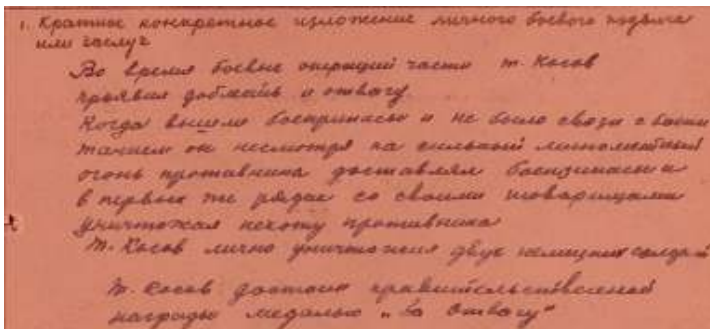 1. Краткое конкретное изложение личного боевого подвига
или заслуг
Во время боевых операций части т. Косов
проявил доблесть и отвагу.
Когда вышли боеприпасы и не было связи с
он несмотря на сильный минометный
огонь противника доставлял боеприпасы и
в первых же рядах со своими товарищами
уничтожал пехоту противника
Т. Косов лично уничтожил двух немецких солдат
Т. Косов достоин правительственной
награды медалью „За Отвагу"